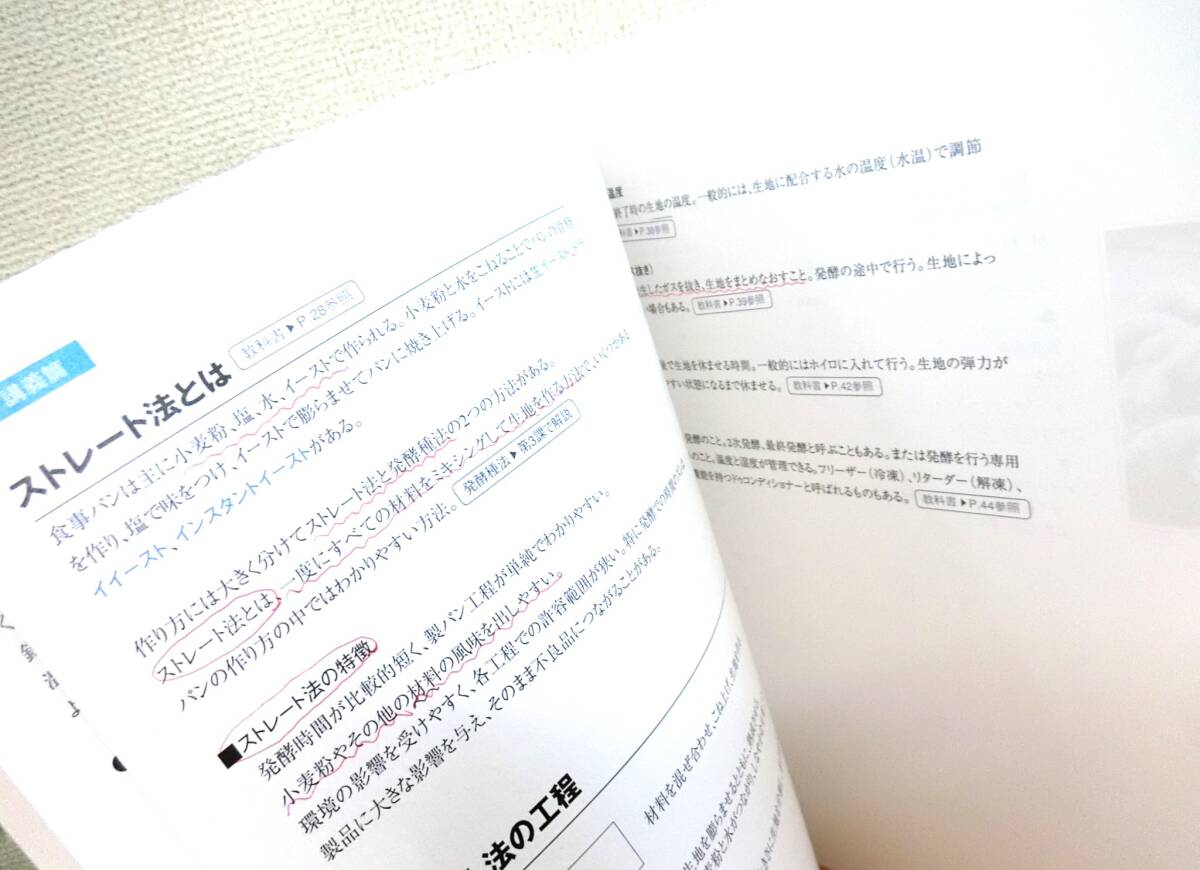 講義篇
ストレート法とは
教科書▶P.28参照
食事パンは主に小麦粉、塩、水、イーストで作られる。小麦粉と水をこねることでパンの骨格
を作り、塩で味をつけ、イーストで膨らませてパンに焼き上げる。イーストには生イースト、ドラ
イイースト、インスタントイーストがある。
作り方には大きく分けてストレート法と発酵種法の2つの方法がある。
ストレート法とは、一度にすべての材料をミキシングして生地を作る方法で、いくつかある
パンの作り方の中ではわかりやすい方法。
発酵種法▶第3課で解説
■ストレート法の特徴
発酵時間が比較的短く、製パン工程が単純でわかりやすい。
小麦粉やその他の材料の風味を出しやすい。
環境の影響を受けやすく、各工程での許容範囲が狭い。特に発酵での時間の
製品に大きな影響を与え、そのまま不良品につながることがある。
法の工程
材料を混ぜ合わせ、こね上げ、
生地を膨らませるとともに、
温度
終了時の生地の温度。一般的には、生地に配合する水の温度(水温)で調節
教科書▶P.38参照
ス抜き)
生したガスを抜き、生地をまとめなおすこと。発酵の途中で行う。生地によっ
い場合もある。
教科書▶P.39参照
で生地を休ませる時間。一般的にはホイロに入れて行う。生地の弾力が
やすい状態になるまで休ませる。
教科書▶P.42参照
発酵のこと。2次発酵、最終発酵と呼ぶこともある。または発酵を行う専用
のこと。温度と湿度が管理できる。フリーザー(冷凍)、リターダー(解凍)、
機能を持つドゥコンディショナーと呼ばれるものもある。
教科書▶P.44参照